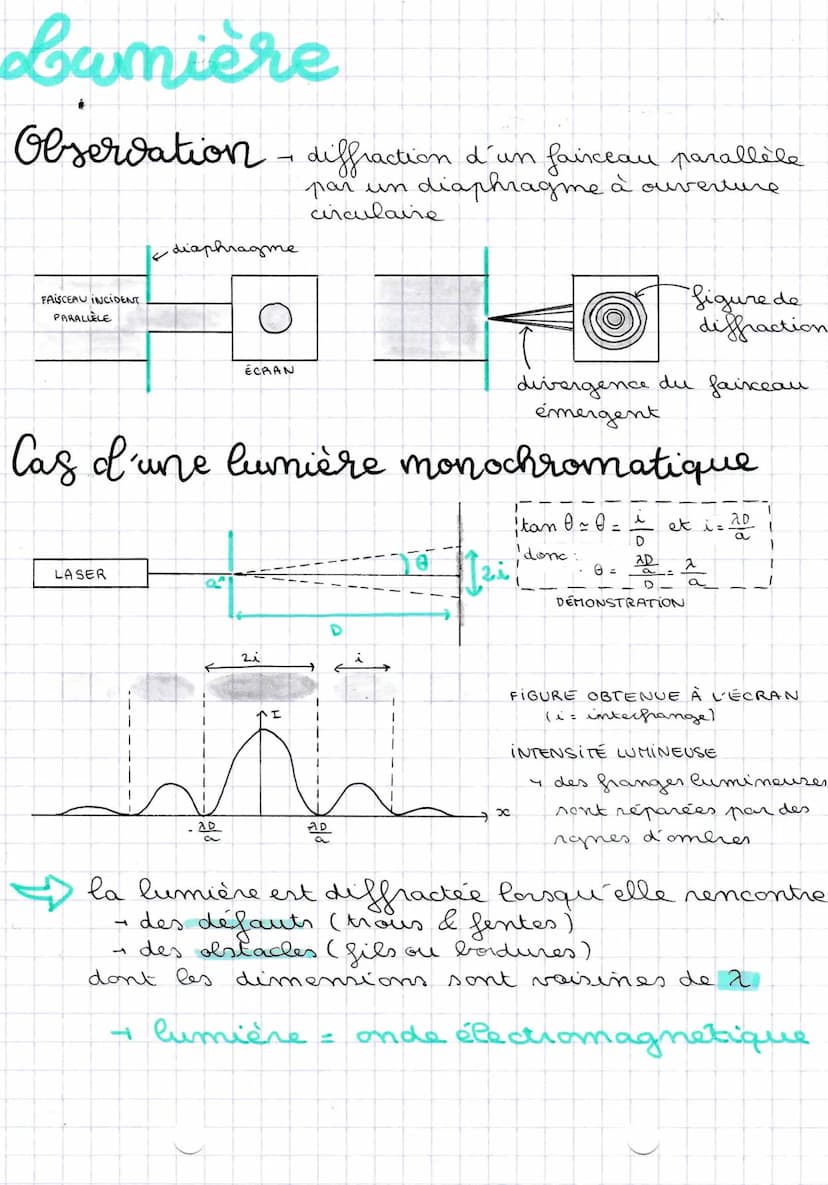 Lumière
Observation → diffraction d'un faisceau parallèle
par un diaphragme à ouverture
circulaire
diaphragme
FAISCEAU INCIDENT
PARALLÈLE
ÉCRAN
figure de
diffraction
divergence du faisceau
émergent
Cas d'une lumière monochromatique
LASER
a
θ
2i
D
tan θ ≃ θ = i/D et i = λD/a
donc :
θ = (λD/a)/D = λ/a
DÉMONSTRATION
2i
i
I
x
- λD/a
λD/a
FIGURE OBTENUE À L'ÉCRAN
(i = interfrange)
INTENSITÉ LUMINEUSE
↳ des franges lumineuses
sont séparées par des
zones d'ombres
la lumière est diffractée lorsqu'elle rencontre
→ des défauts (trous & fentes)
→ des obstacles (fils ou bordures)
dont les dimensions sont voisines de λ
→ lumière = onde électromagnétique